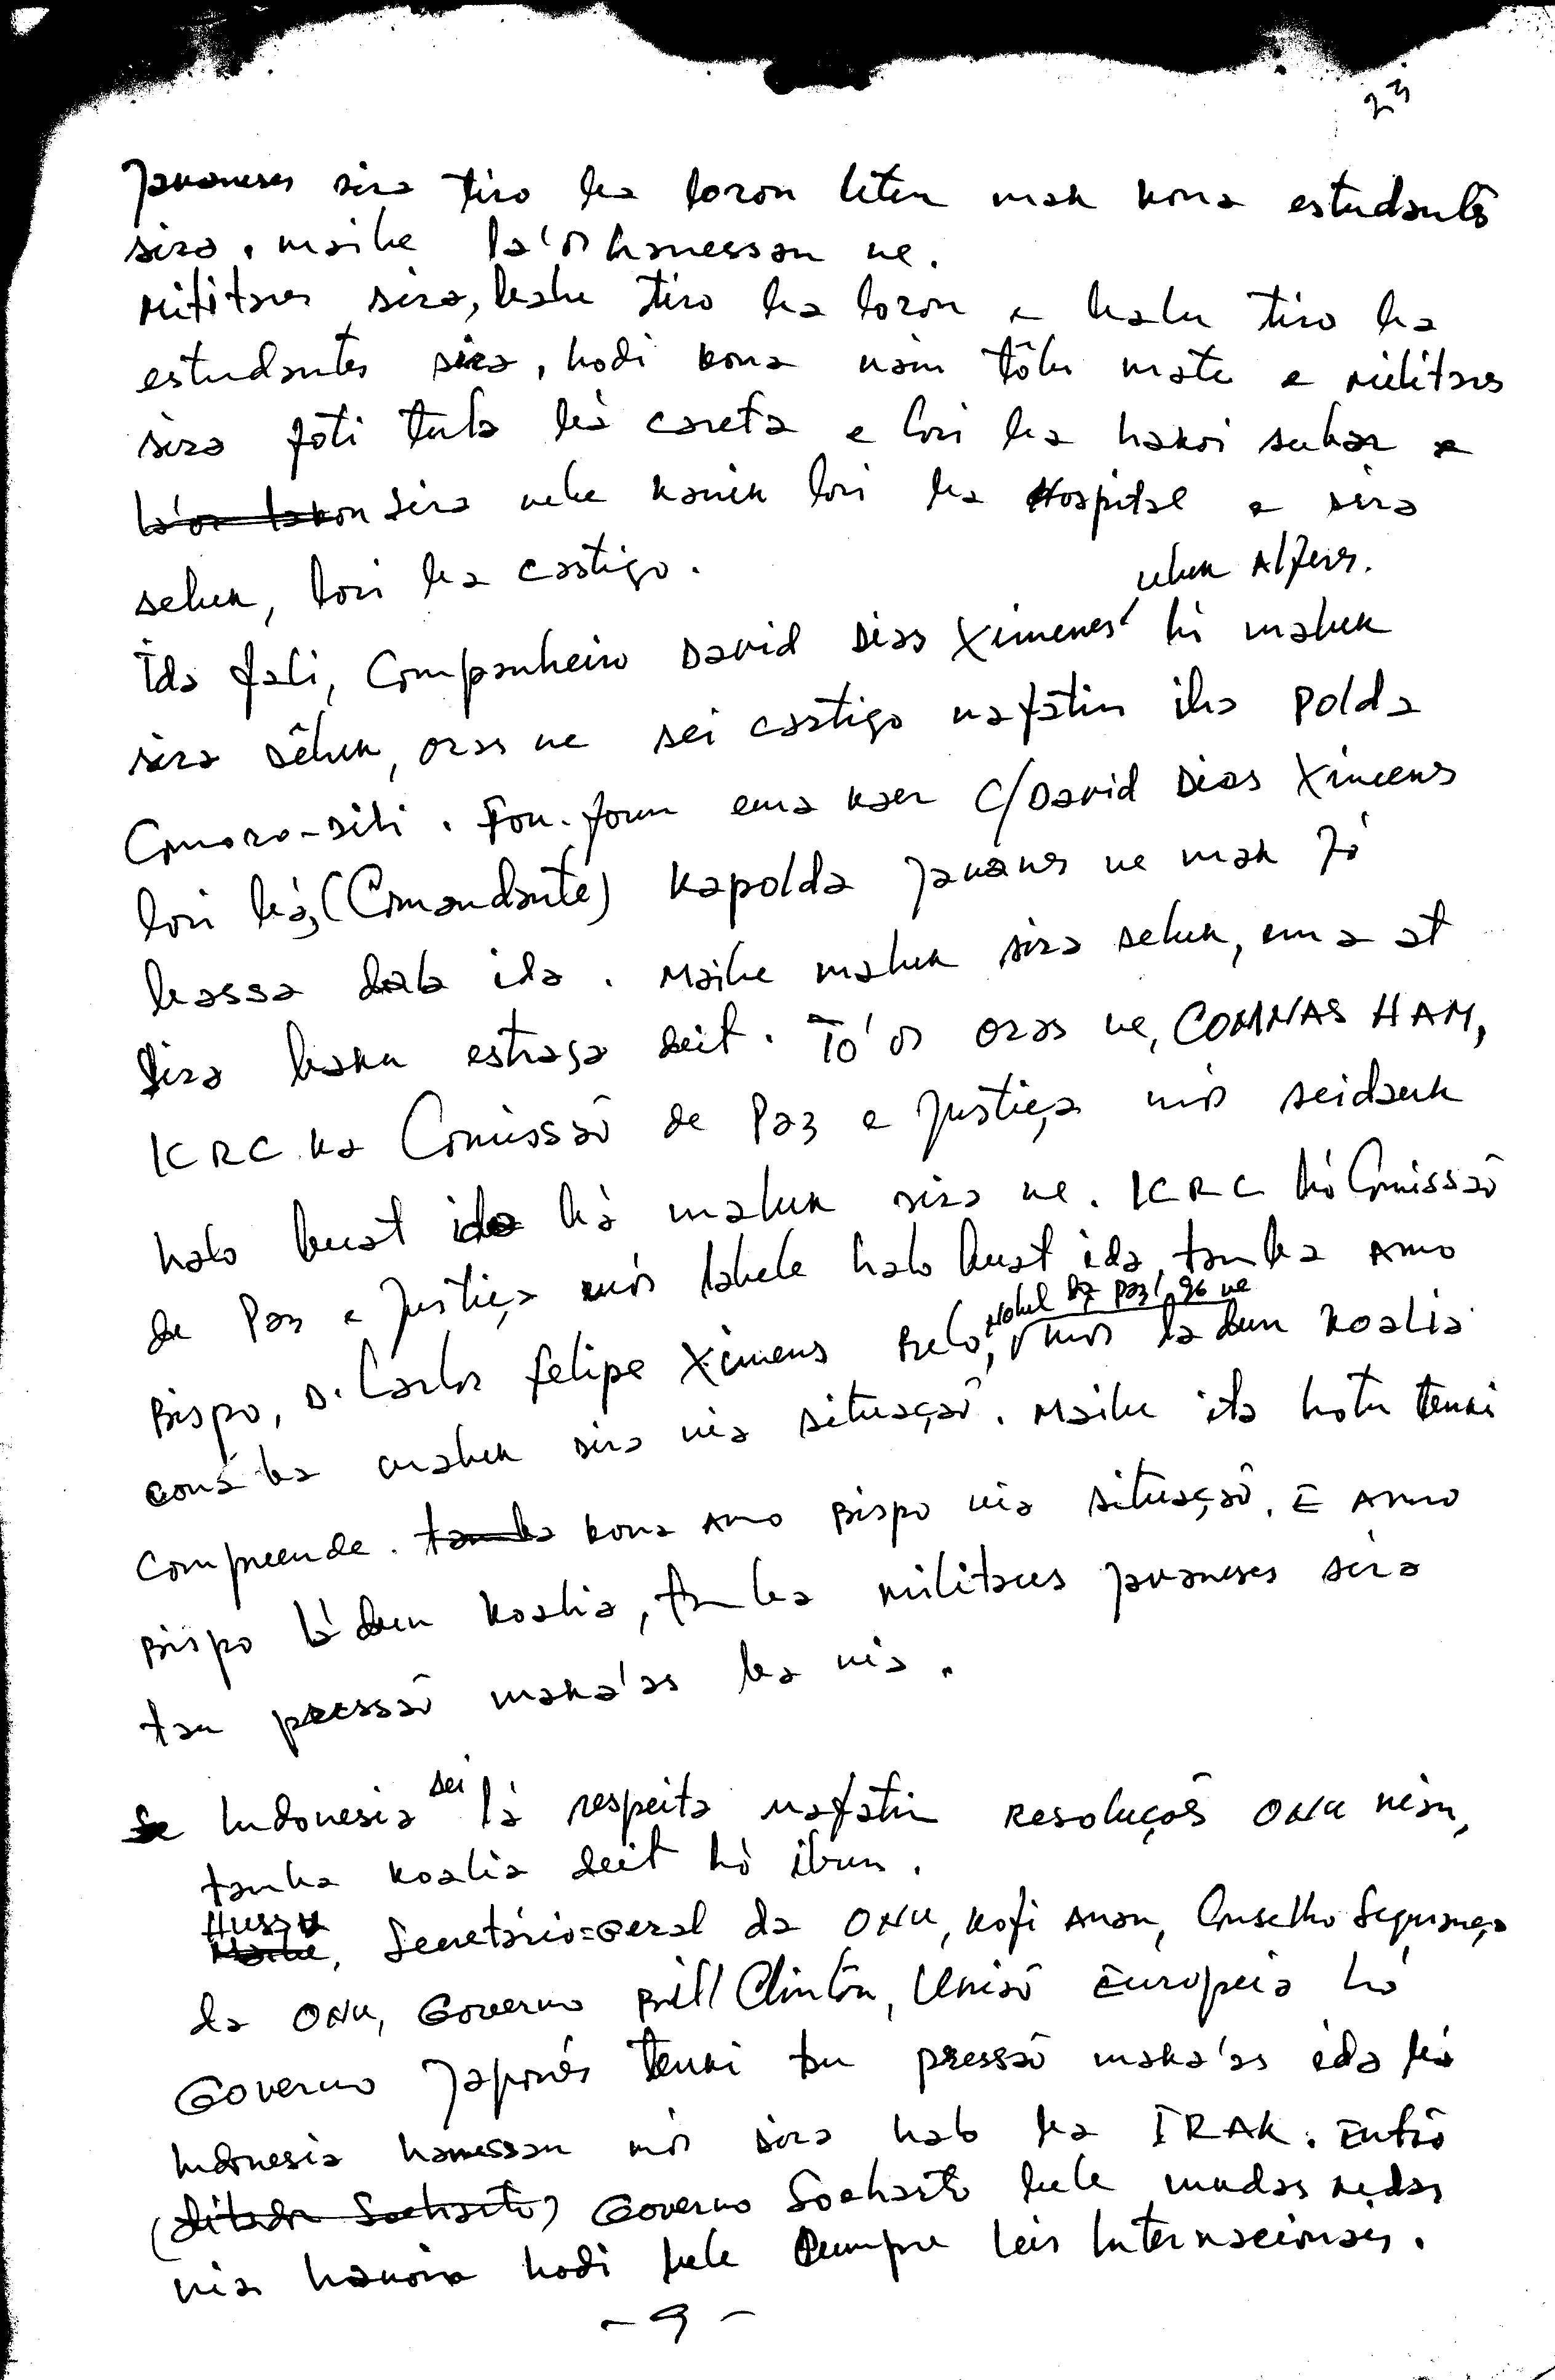 23
Javaneses sira tiro ba loron leten mak kona estudantes
sira, maibe la'ós hanessan ne.
Militares sira, balu tiro ba loron e balu tiro ba
estudantes sira, hodi kona nain tôlu mate e militares
sira foti tula bá careta e lori ba hakoi subar e
sira nebe kanek lori ba Hospital e sira
seluk, lori ba castigo.
uluk Alferes.
Ida fali, Companheiro David Dias Ximenes hó maluk
sira sêluk, oras ne sei castigo nafatin iha Polda
Comoro-Dili. Fou-foun ema kaer C/David Dias Ximenes
lori bá, (Comandante) Kapolda Javanes ne mak fó
bassa dala ida. Maibe maluk sira seluk, ema at
sira baku estraga deit. Tó'os oras ne, COMNAS HAM,
ICRC ka Comissão de Paz e Justiça mós seidauk
halo buat ida bá maluk sira ne. ICRC hó Comissão
de Paz e Justiça mós labele halo buat ida, tamba Amo
Nobel da Paz/96 ne
Bispo, D. Carlos Felipe Ximenes Belo, mós la dun koalia
coná ba maluk sira nia situação. Maibe ita hotu tenki
compreende. tamba kona Amo Bispo nia situação. E Amo
Bispo lá dun koalia, tamba militares javaneses sira
tau pressão maka'as ba nia.
sei
Indonesia lá respeita nafatin Resoluçõs ONU nian,
tamba koalia deit hó ibun.
Hussu
, Secretário-Geral da ONU, Kofi Anan, Conselho Segurança
da ONU, Governo Bill Clinton, União Europeia hó
Governo Japonês tenki tau pressão maka'as ida bá
Indonesia hanessan mós sira halo ba IRAK. Então
(ditador Soeharto) Governo Soeharto bele mudas nedas
nia hanoin hodi bele cumpre leis Internacionais.
- 9 -